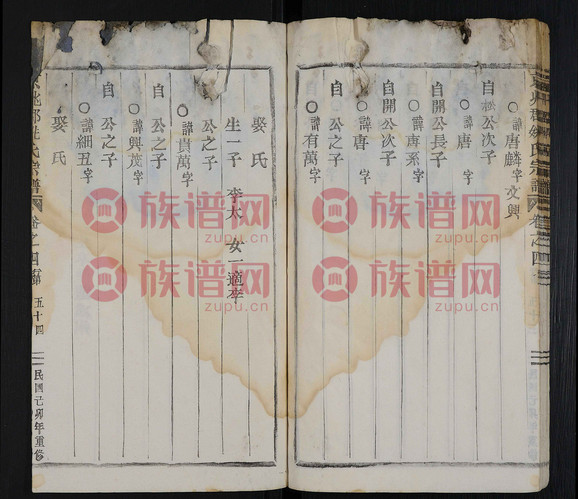 ○諱唐麟字文興
自松公次子
○諱唐字
自開公長子
○諱唐系字
自開公次子
○諱唐字
自公之子
○諱有萬字
娶氏
生一子 李太 女一適李
公之子
○諱貴萬字
自公之子
○諱興茂字
自公之子
○諱細丑字
娶氏
氏宗譜 卷之四 五十四 民國己卯年重修
氏宗譜 卷之四
族谱网
zupu.cn
族谱网
zupu.cn
族谱网
zupu.cn
族谱网
zupu.cn
族谱网
zupu.cn
族谱网
zupu.cn